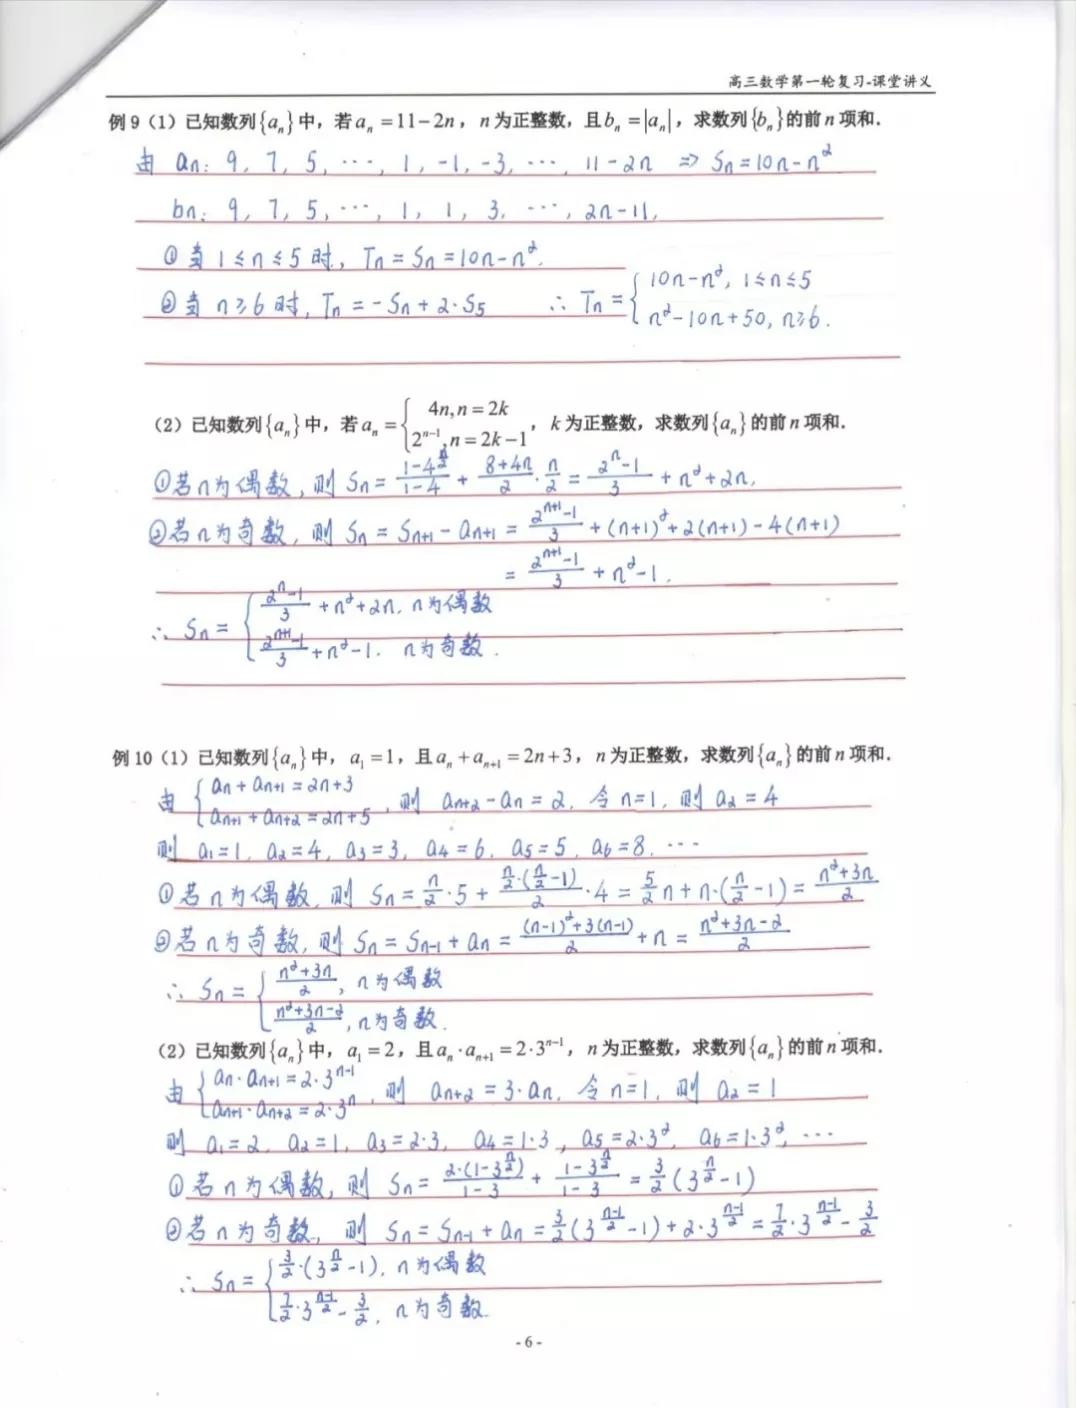 高三数学第一轮复习-课堂讲义
例 9（1）已知数列{aₙ}中，若 aₙ =11−2n，n 为正整数，且 bₙ =|aₙ|，求数列{bₙ}的前 n 项和.
由 aₙ: 9, 7, 5, ⋯, 1, -1, -3, ⋯, 11-2n ⇒ Sₙ=10n-n²
bₙ: 9, 7, 5, ⋯, 1, 1, 3, ⋯, 2n-11,
①当 1≤n≤5 时, Tₙ=Sₙ=10n-n².
②当 n≥6 时, Tₙ=-Sₙ+2·S₅ ∴ Tₙ={10n-n², 1≤n≤5
n²-10n+50, n≥6.
（2）已知数列{aₙ}中，若 aₙ ={4n, n=2k
2ⁿ⁻¹, n=2k−1，k 为正整数，求数列{aₙ}的前 n 项和.
①若n为偶数, 则 Sₙ=(1-4^(n/2))/(1-4) + (8+4n)/2·n/2 = (2ⁿ-1)/3 + n²+2n.
②若n为奇数, 则 Sₙ=Sₙ₊₁-aₙ₊₁ = (2ⁿ⁺¹-1)/3 + (n+1)²+2(n+1)-4(n+1)
= (2ⁿ⁺¹-1)/3 + n²-1.
∴ Sₙ={(2ⁿ-1)/3 + n²+2n, n为偶数
(2ⁿ⁺¹-1)/3 + n²-1, n为奇数.
例 10（1）已知数列{aₙ}中，a₁=1，且 aₙ+aₙ₊₁=2n+3，n 为正整数，求数列{aₙ}的前 n 项和.
由 {aₙ+aₙ₊₁=2n+3
aₙ₊₁+aₙ₊₂=2n+5, 则 aₙ₊₂-aₙ=2. 令 n=1, 则 a₂=4
则 a₁=1, a₂=4, a₃=3, a₄=6, a₅=5, a₆=8, ⋯
①若n为偶数, 则 Sₙ=n/2·5 + (n/2·(n/2-1))/2·4 = 5/2n+n·(n/2-1) = (n²+3n)/2
②若n为奇数, 则 Sₙ=Sₙ₋₁+aₙ = ((n-1)²+3(n-1))/2 + n = (n²+3n-2)/2
∴ Sₙ={(n²+3n)/2, n为偶数
(n²+3n-2)/2, n为奇数.
（2）已知数列{aₙ}中，a₁=2，且 aₙ·aₙ₊₁=2·3ⁿ⁻¹，n 为正整数，求数列{aₙ}的前 n 项和.
由 {aₙ·aₙ₊₁=2·3ⁿ⁻¹
aₙ₊₁·aₙ₊₂=2·3ⁿ, 则 aₙ₊₂=3·aₙ. 令 n=1, 则 a₂=1
则 a₁=2, a₂=1, a₃=2·3, a₄=1·3, a₅=2·3², a₆=1·3², ⋯
①若n为偶数, 则 Sₙ=(2·(1-3^(n/2)))/(1-3) + (1-3^(n/2))/(1-3) = 3/2(3^(n/2)-1)
②若n为奇数, 则 Sₙ=Sₙ₋₁+aₙ=3/2(3^((n-1)/2)-1)+2·3^((n-1)/2)=7/2·3^((n-1)/2)-3/2
∴ Sₙ={3/2·(3^(n/2)-1), n为偶数
7/2·3^((n-1)/2)-3/2, n为奇数.
- 6 -